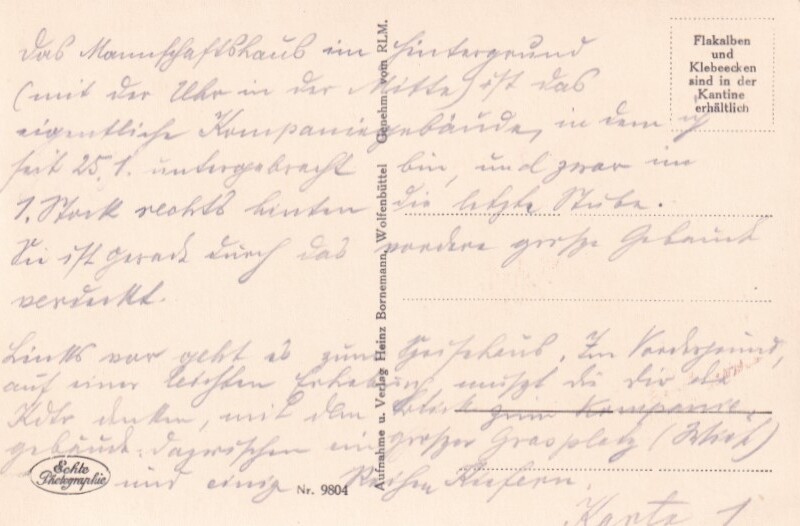 Das Mannschaftshaus im Hintergrund
(mit der Uhr in der Mitte) ist das
eigentliche Kompaniegebäude, in dem ich
seit 25.1. untergebracht bin, und zwar im
1. Stock rechts hinten die letzte Stube.
Sie ist gerade durch das vordere große Gebäude
verdeckt.
Links vor geht es zum Speisehaus. Im Vordergrund,
auf einer leichten Erhebung mußt du dir die
Kdtr denken, mit dem Blick zum Kompanie-
gebäude. Dazwischen ein großer Grasplatz (Wiese)
und einige Reihen Kiefern.
Karte 1
Flakalben
und
Klebeecken
sind in der
Kantine
erhältlich
Aufnahme u. Verlag Heinz Bornemann, Wolfenbüttel Genehm. vom RLM.
Echte
Photographie
Nr. 9804